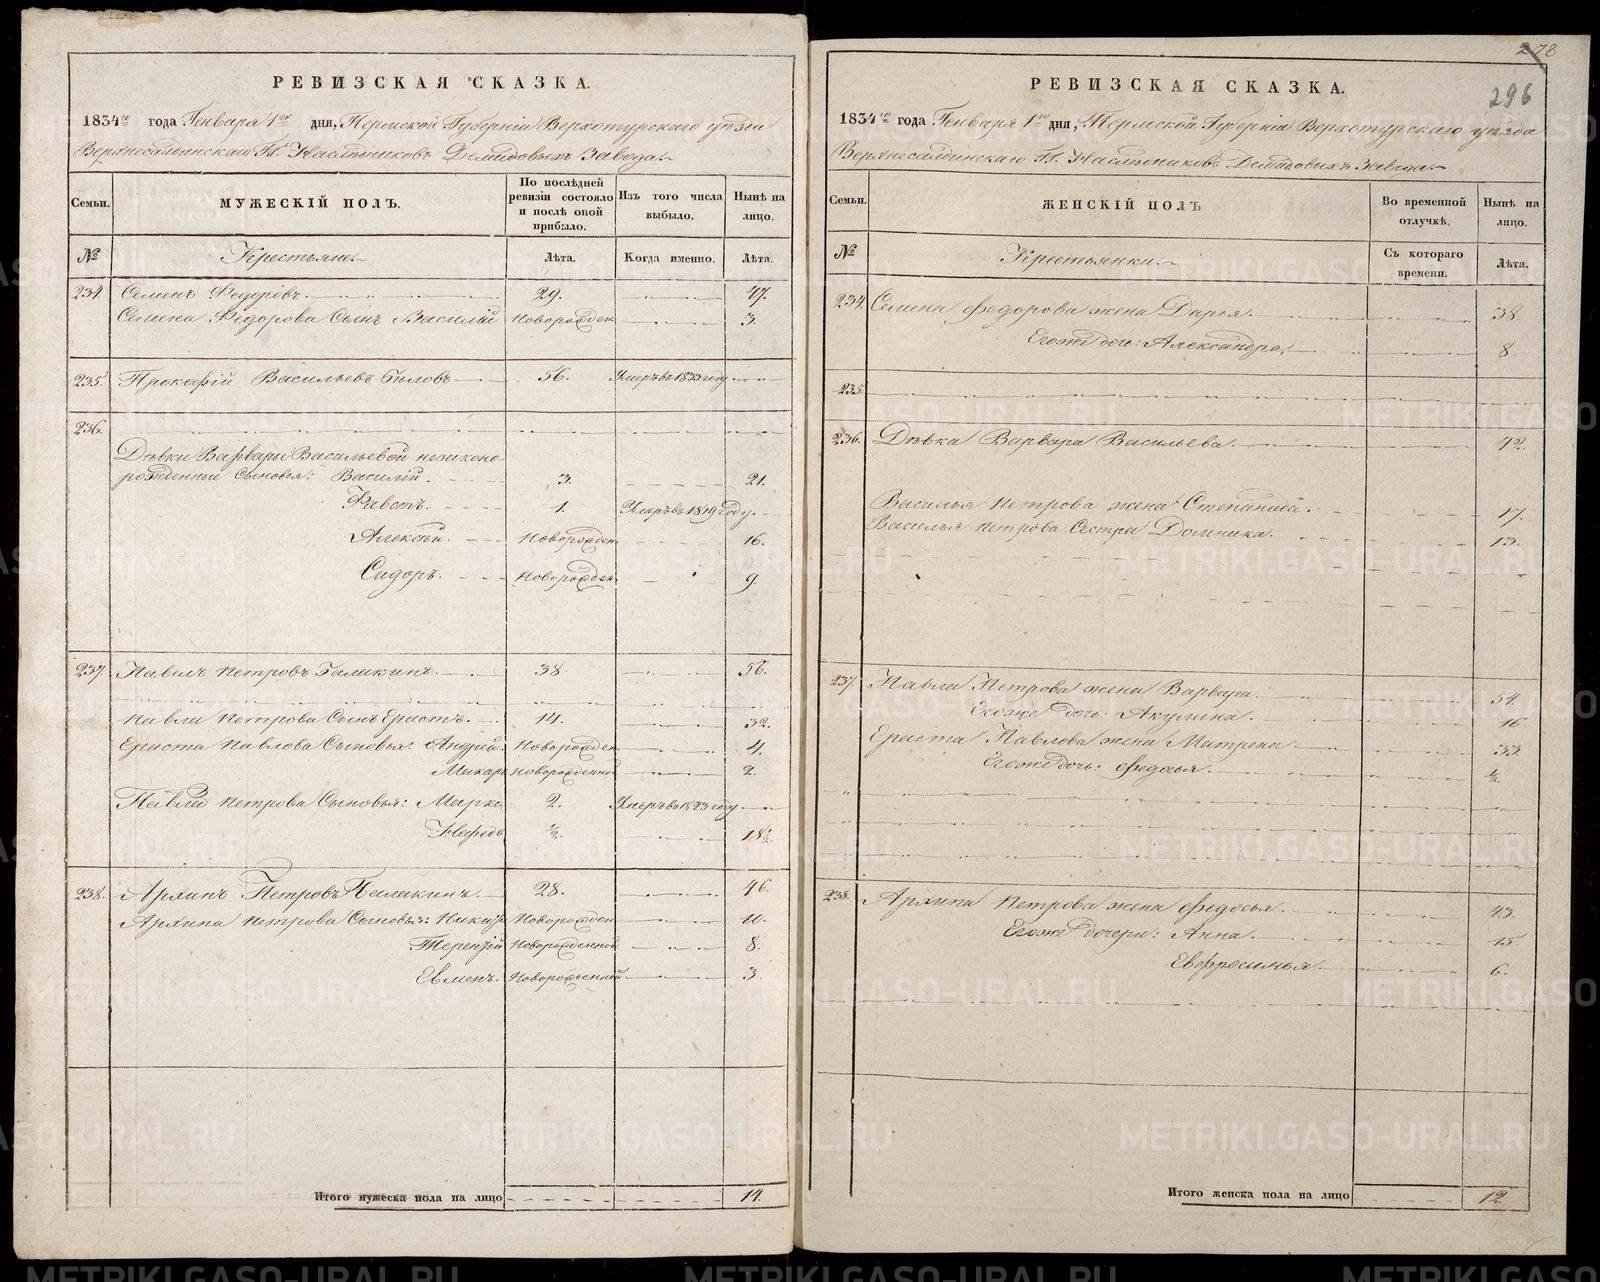 РЕВИЗСКАЯ СКАЗКА.
1834го года Генваря 1го дня, Пермской Губерніи Верхотурскаго уѣзда
Верхнесалдинскаго Гг. Наслѣдниковъ Демидовыхъ Завода.
Семьи. МУЖЕСКІЙ ПОЛЪ. По послѣдней ревизіи состояло и послѣ оной прибыло. Изъ того числа выбыло. Нынѣ на лицо.
№ Крестьяне. Лѣта. Когда именно. Лѣта.
234. Семенъ Федоровъ. 29. 47.
Семена Федорова Сынъ Василій Новорожден. 3.
235. Прокофій Васильевъ Бѣловъ 56. Умеръ въ 1833 году
236.
Дѣвки Варвары Васильевой незаконо-
рожденные Сыновья: Василій. 3. 21.
Фавстъ. 1. Умеръ въ 1819 году.
Алексѣй. Новорожден. 16.
Сидоръ. Новорожден. 9.
237. Павелъ Петровъ Балакинъ. 38. 56.
Павла Петрова Сынъ Ерастъ. 14. 32.
Ераста Павлова Сыновья: Андрей. Новорожден. 4.
Макаръ Новорожденной 2.
Павла Петрова Сыновья: Марко 2. Умеръ въ 1823 году
Нефедъ ½. 18½
238. Архипъ Петровъ Балакинъ. 28. 46.
Архипа Петрова Сыновья: Никита Новорожден. 10.
Терентій Новорожденной 8.
Евменъ. Новорожденной. 3.
Итого мужеска пола на лицо 14.
278
296
РЕВИЗСКАЯ СКАЗКА.
1834го года Генваря 1го дня, Пермской Губерніи Верхотурскаго уѣзда
Верхнесалдинскаго Гг. Наслѣдниковъ Демидовыхъ Завода.
Семьи. ЖЕНСКІЙ ПОЛЪ Во временной отлучкѣ. Нынѣ на лицо.
№ Крестьянки. Съ котораго времени. Лѣта.
234. Семена Федорова жена Дарья. 38.
Его же дочь: Александра. 8.
235.
236. Дѣвка Варвара Васильева. 42.
Василья Петрова жена Степанида. 17.
Василья Петрова Сестра Домника. 13.
237. Павла Петрова жена Варвара. 54.
Его же дочь: Акулина. 16.
Ераста Павлова жена Матрена. 33.
Его же дочь: Федосья. ½.
238. Архипа Петрова жена Федосья. 43.
Его же дочери: Анна. 15
Евфросинья. 6.
Итого женска пола на лицо 12
METRIKI.GASO-URAL.RU